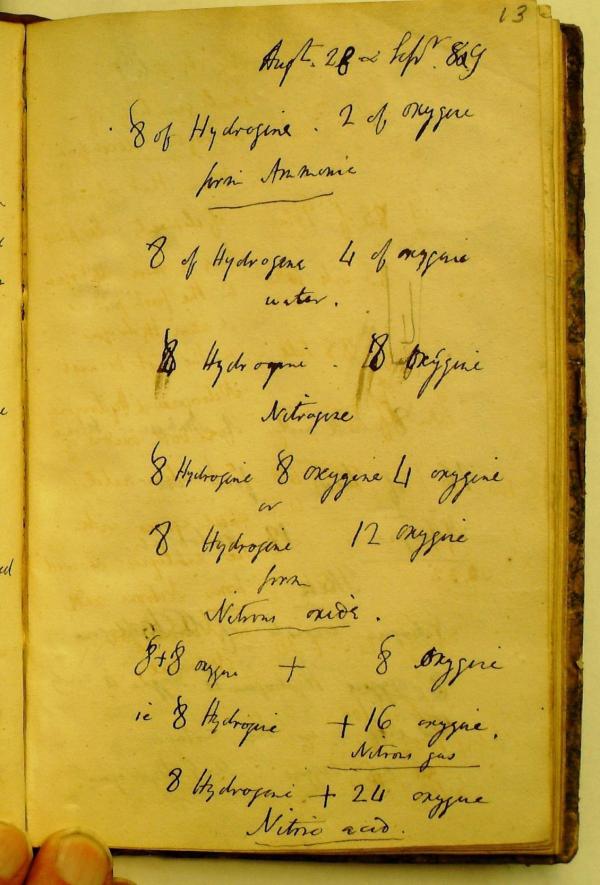 13
Augt. 28 & Septr. 809
8 of Hydrogene . 2 of oxygene
form Ammonia
8 of Hydrogene 4 of oxygene
water.
8 Hydrogene . 8 oxygene
Nitrogene
8 Hydrogene 8 oxygene 4 oxygene
or
8 Hydrogene 12 oxygene
form
Nitrous oxide.
8+8 oxygene + 8 oxygene
ie 8 Hydrogene + 16 oxygene.
Nitrous gas
8 Hydrogene + 24 oxygene
Nitric acid.